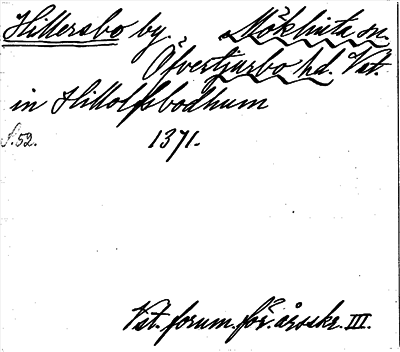 Hillersbo by. Möklinta sn.
Öfvertjurbo hd. Vst.
in Hillolfsbodhum
S. 52. 1371.
Vst. forum. för. årsskr. III.